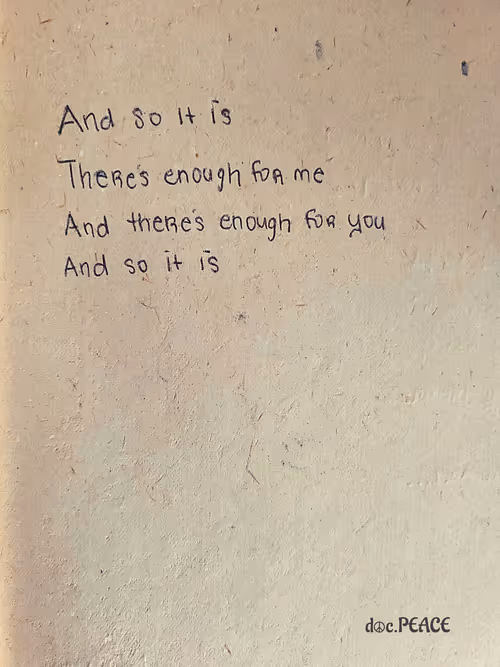 And so it is
There's enough for me
And there's enough for you
And so it is
doc.PEACE